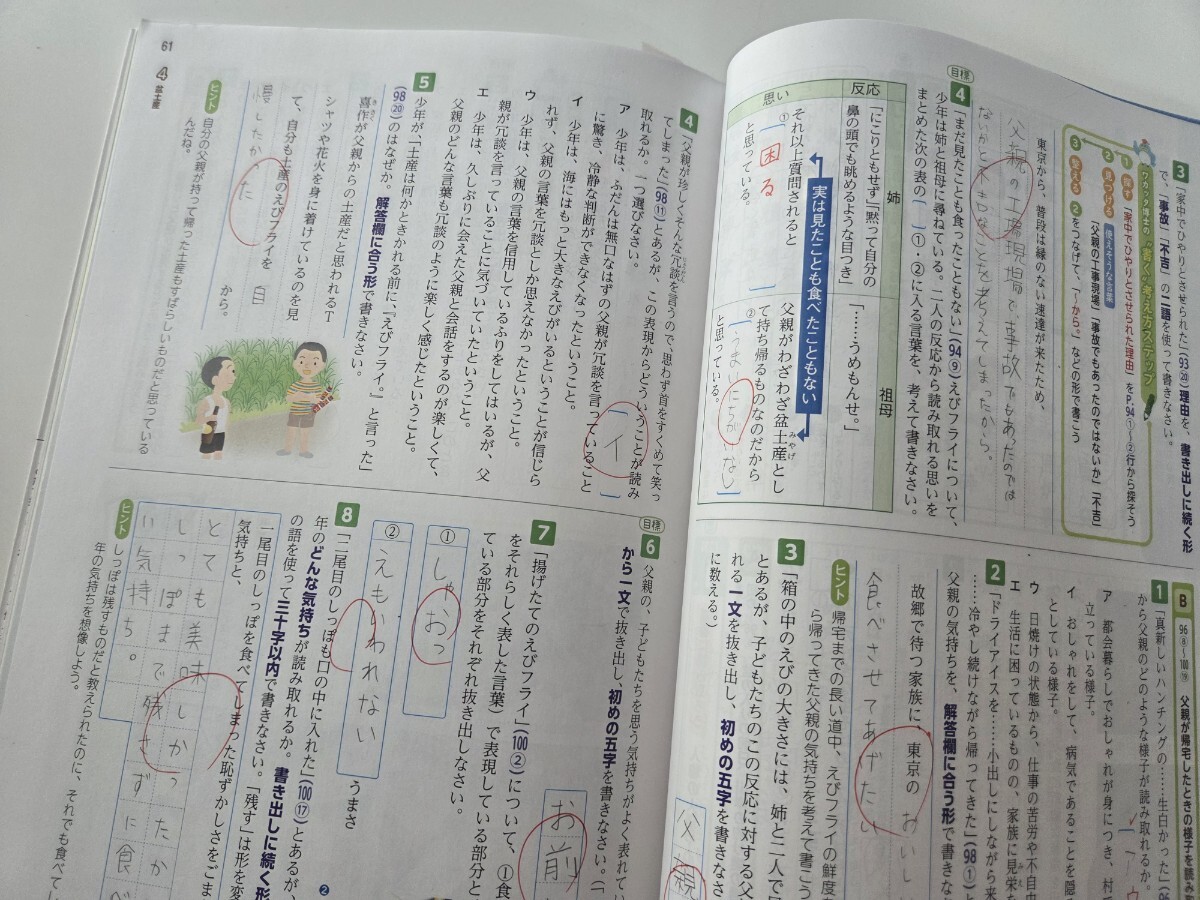 3 「家中でひやりとさせられた」(93⑳)理由を、書き出しに続く形
で、「事故」「不吉」の二語を使って書きなさい。
ワカッタ博士の“書く”考え方ステップ
1 探す 「家中でひやりとさせられた理由」をP.94①〜②行から探そう
2 見つける 使えそうな言葉 「父親の工事現場」「事故でもあったのではないか」「不吉」
3 整える 2をつなげて、「〜から。」などの形で書こう
東京から、普段は縁のない速達が来たため、
父親の工事現場で、事故でもあったのでは
ないかと不吉なことを考えてしまったから。
目標
4 「まだ見たことも食ったこともない」(94⑨)えびフライについて、
少年は姉と祖母に尋ねている。二人の反応から読み取れる思いを
まとめた次の表の( )①・②に入る言葉を、考えて書きなさい。
姉
祖母
反応
「にこりともせず」「黙って自分の
鼻の頭でも眺めるような目つき」
「……うめもんせ。」
実は見たことも食べたこともない
思い
それ以上質問されると
① 困る
と思っている。
父親がわざわざ盆土産とし
て持ち帰るものなのだから
② うまいにちがいない
と思っている。
B 96⑧〜100⑲ 父親が帰宅したときの様子を読み
1 「真新しいハンチングの……生白かった」(96
から父親のどのような様子が読み取れるか。
ア 都会暮らしでおしゃれが身につき、村
立っている様子。
イ おしゃれをして、病気であることを隠
としている様子。
ウ 日焼けの状態から、仕事の苦労や不自由
エ 生活に困っているものの、家族に見栄を
2 「ドライアイスを……小出しにしながら来
……冷やし続けながら帰ってきた」(98①)と
父親の気持ちを、解答欄に合う形で書きな
故郷で待つ家族に、東京の おいし
食べさせてあげたい
ヒント 帰宅までの長い道中、えびフライの鮮度を
ら帰ってきた父親の気持ちを考えて書こう
3 「箱の中のえびの大きさには、姉と二人で
とあるが、子どもたちのこの反応に対する父
れる一文を抜き出し、初めの五字を書きなさ
に数える。)
父親
61
4 盆土産
4 「父親が珍しくそんな冗談を言うので、思わず首をすくめて笑っ
てしまった」(98⑪)とあるが、この表現からどういうことが読み
取れるか。一つ選びなさい。
イ
ア 少年は、ふだんは無口なはずの父親が冗談を言っていること
に驚き、冷静な判断ができなくなったということ。
イ 少年は、海にはもっと大きなえびがいるということが信じら
れず、父親の言葉を冗談としか思えなかったということ。
ウ 少年は、父親の言葉を信用しているふりをしてはいるが、父
親が冗談を言っていることに気づいていたということ。
エ 少年は、久しぶりに会えた父親と会話をするのが楽しくて、
父親のどんな言葉も冗談のように楽しく感じたということ。
5 少年が、「土産は何かときかれる前に、『えびフライ。』と言った」
(98⑳)のはなぜか。解答欄に合う形で書きなさい。
喜作が父親からの土産だと思われるT
シャツや花火を身に着けているのを見
て、自分も土産のえびフライを 自
慢したかった
から。
ヒント 自分の父親が持って帰った土産もすばらしいものだと思っている
んだね。
目標
6 父親の、子どもたちを思う気持ちがよく表れてい
から一文を抜き出し、初めの五字を書きなさい。(「
お前
7 「揚げたてのえびフライ」(100②)について、①食
をそれらしく表した言葉)で表現している部分と
ている部分をそれぞれ抜き出しなさい。
① しゃおっ
② えもいわれない
うまさ
8 「二尾目のしっぽも口の中に入れた」(100⑰)とあるが、
年のどんな気持ちが読み取れるか。書き出しに続く形
の語を使って三十字以内で書きなさい。「残す」は形を変
一尾目のしっぽを食べてしまった恥ずかしさをごま
気持ちと、
とても美味しかったか
しっぽまで残さずに食べ
い気持ち。
ヒント しっぽは残すものだと教えられたのに、それでも食べてい
年の気持ちを想像しよう。